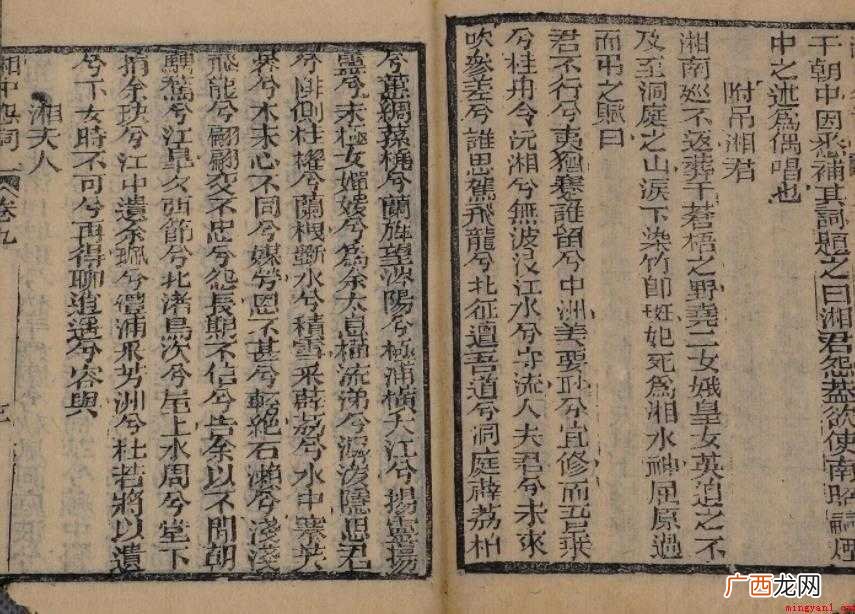 干朝中因悉補其詞題之曰湘君怨蓋欲使南昭嗣煙
中之述爲偶唱也
附吊湘君
湘南廵不返葬于蒼梧之野堯二女娥皇女英追之不
及至洞庭之山淚下染竹卽斑妃死爲湘水神屈原過
而吊之賦曰
君不行兮夷猶蹇誰留兮中洲美要眇兮宜修而吾乘
兮桂舟令沅湘兮無波江水兮安流人夫君兮未來
吹參差兮誰思駕飛龍兮北征邅吾道兮洞庭薜荔柏
兮蕙綢蓀橈兮蘭旌望涔陽兮極浦橫大江兮揚靈揚
靈兮未極女嬋媛兮爲余太息橫流涕兮潺湲隱思君
兮悱側桂櫂兮蘭枻斲水兮積雪采薜荔兮水中搴芙
蓉兮木末心不同兮媒勞恩不甚兮輕絕石瀨兮淺淺
飛龍兮翩翩交不忠兮怨長期不信兮告余以不閒朝
騁騖兮江臯夕弭節兮北渚鳥次兮屋上水周兮堂下
捐余玦兮江中遺余珮兮澧浦采芳洲兮杜若將以遺
兮下女時不可兮再得聊逍遥兮容與
湘夫人
湘中怨詞 卷九
广西龙网